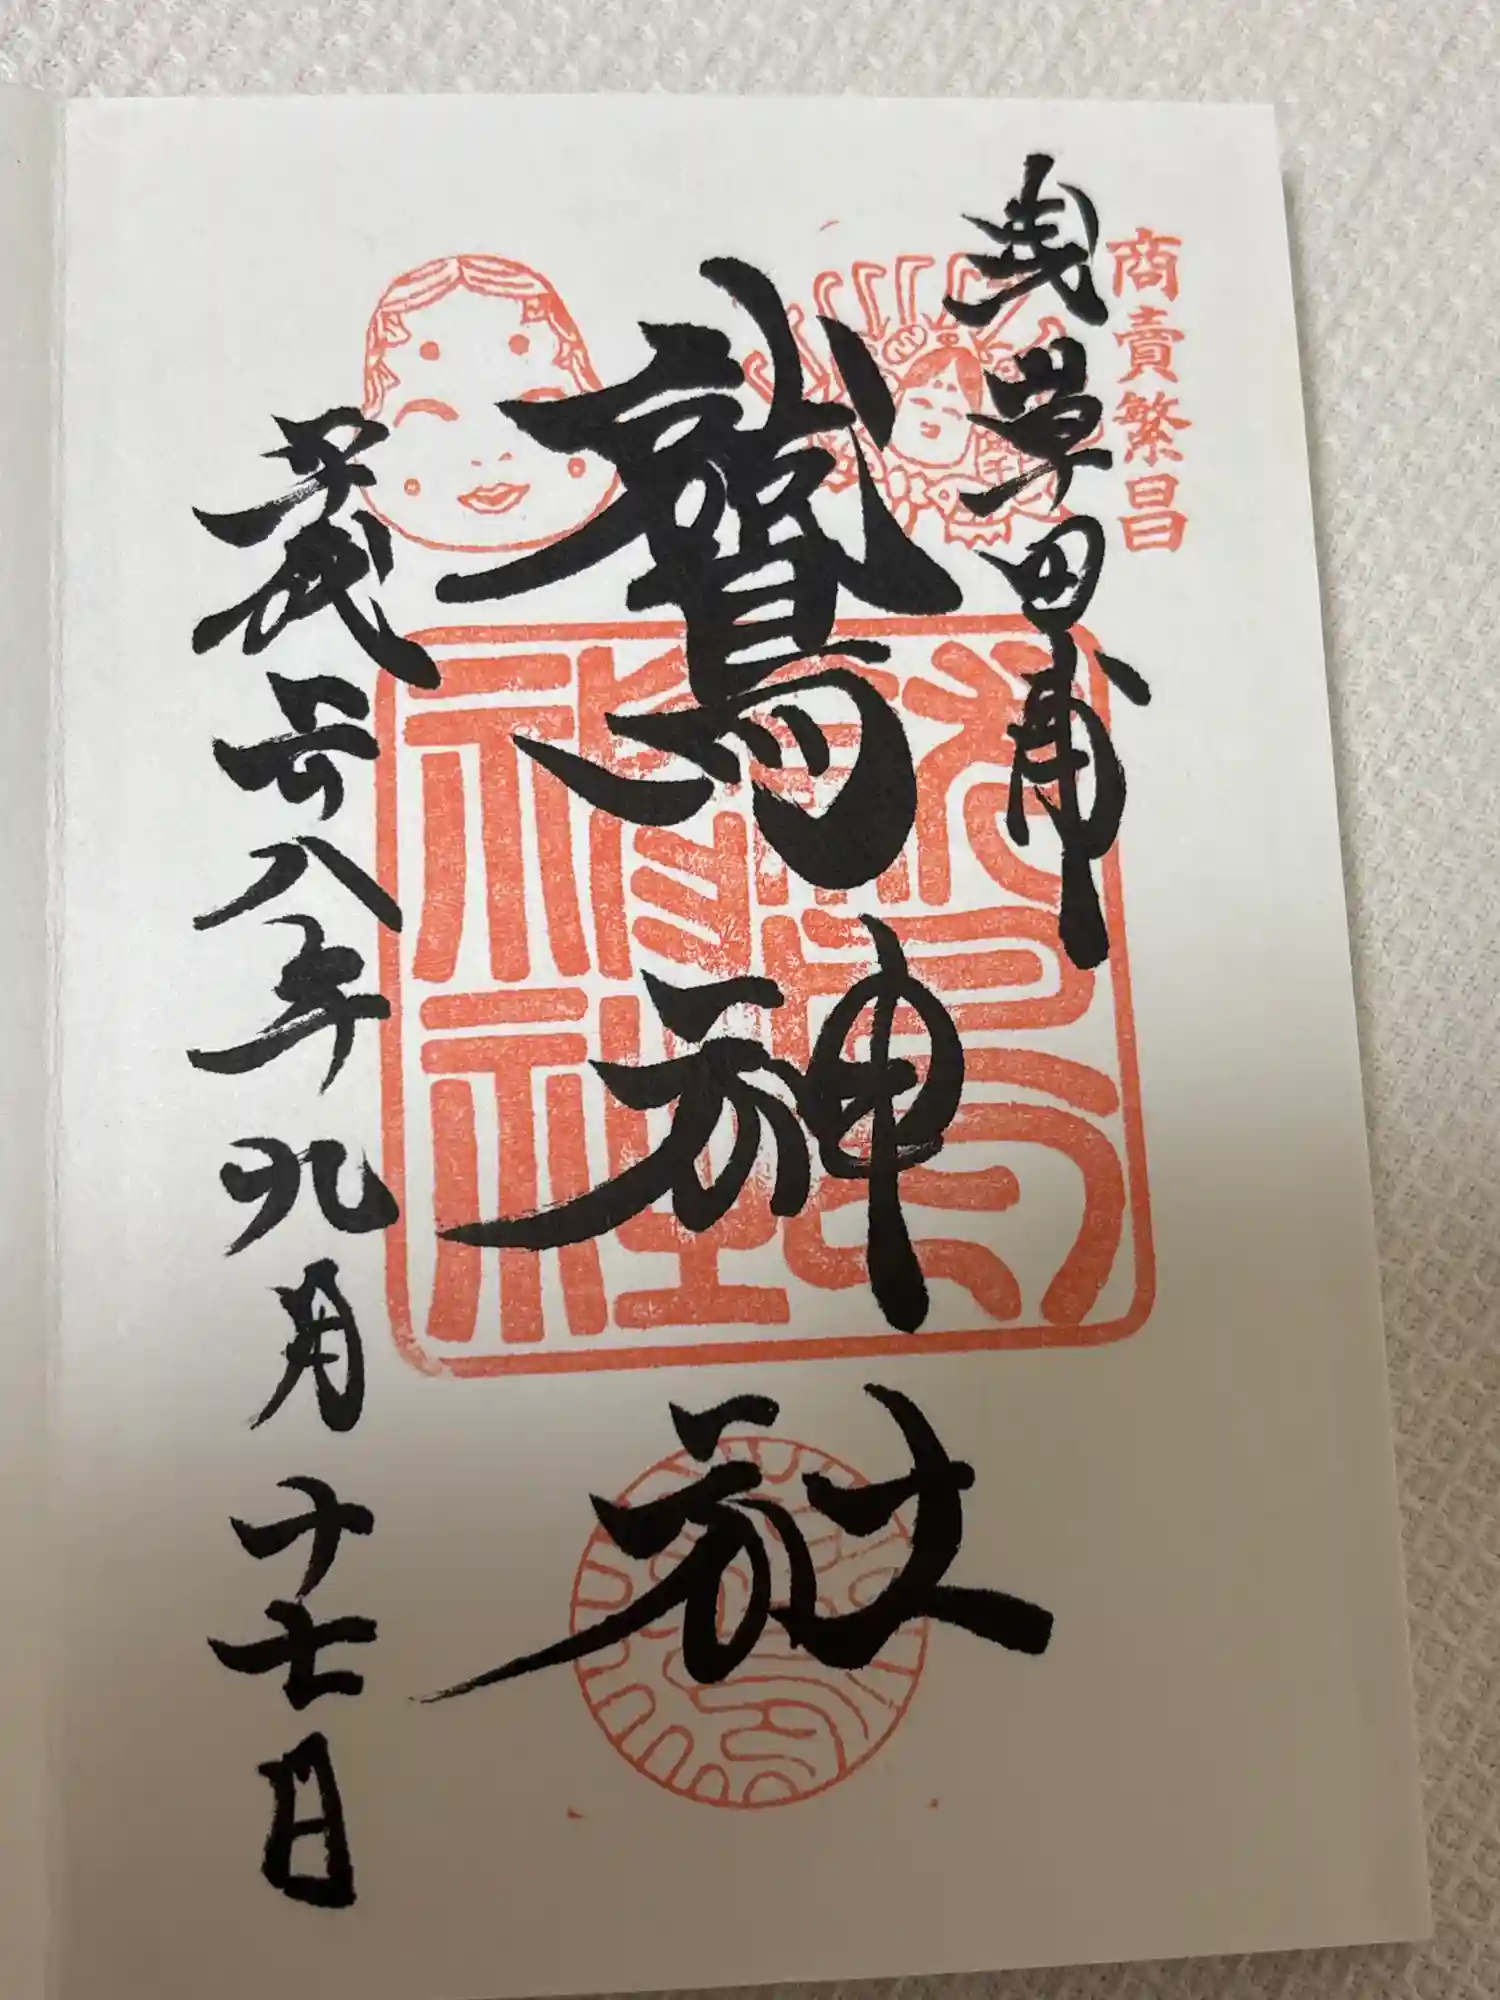 商賣繁昌
浅草田甫
鷲神社
平成二十八年九月十七日